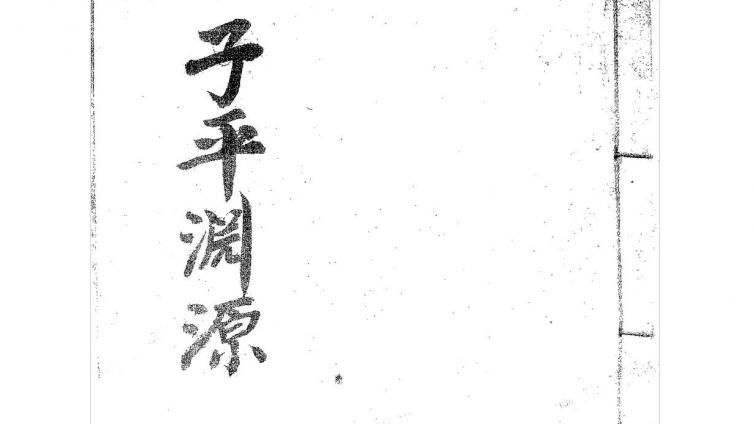 子平淵源